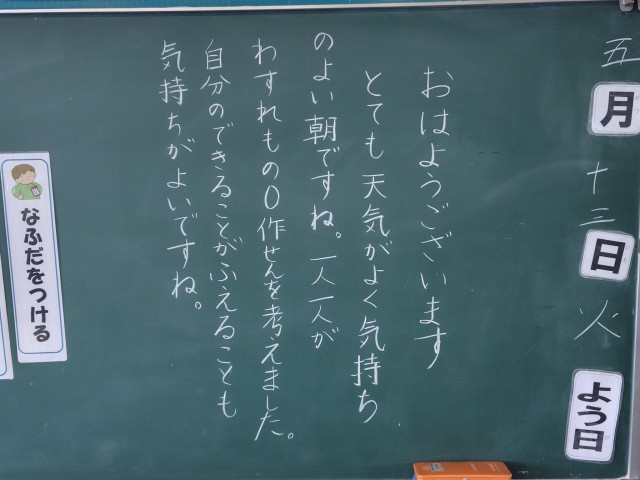 五月十三日火よう日
おはようございます
とても天気がよく気持ち
のよい朝ですね。一人一人が
わすれもの0作せんを考えました。
自分のできることがふえることも
気持ちがよいですね。
なふだをつける